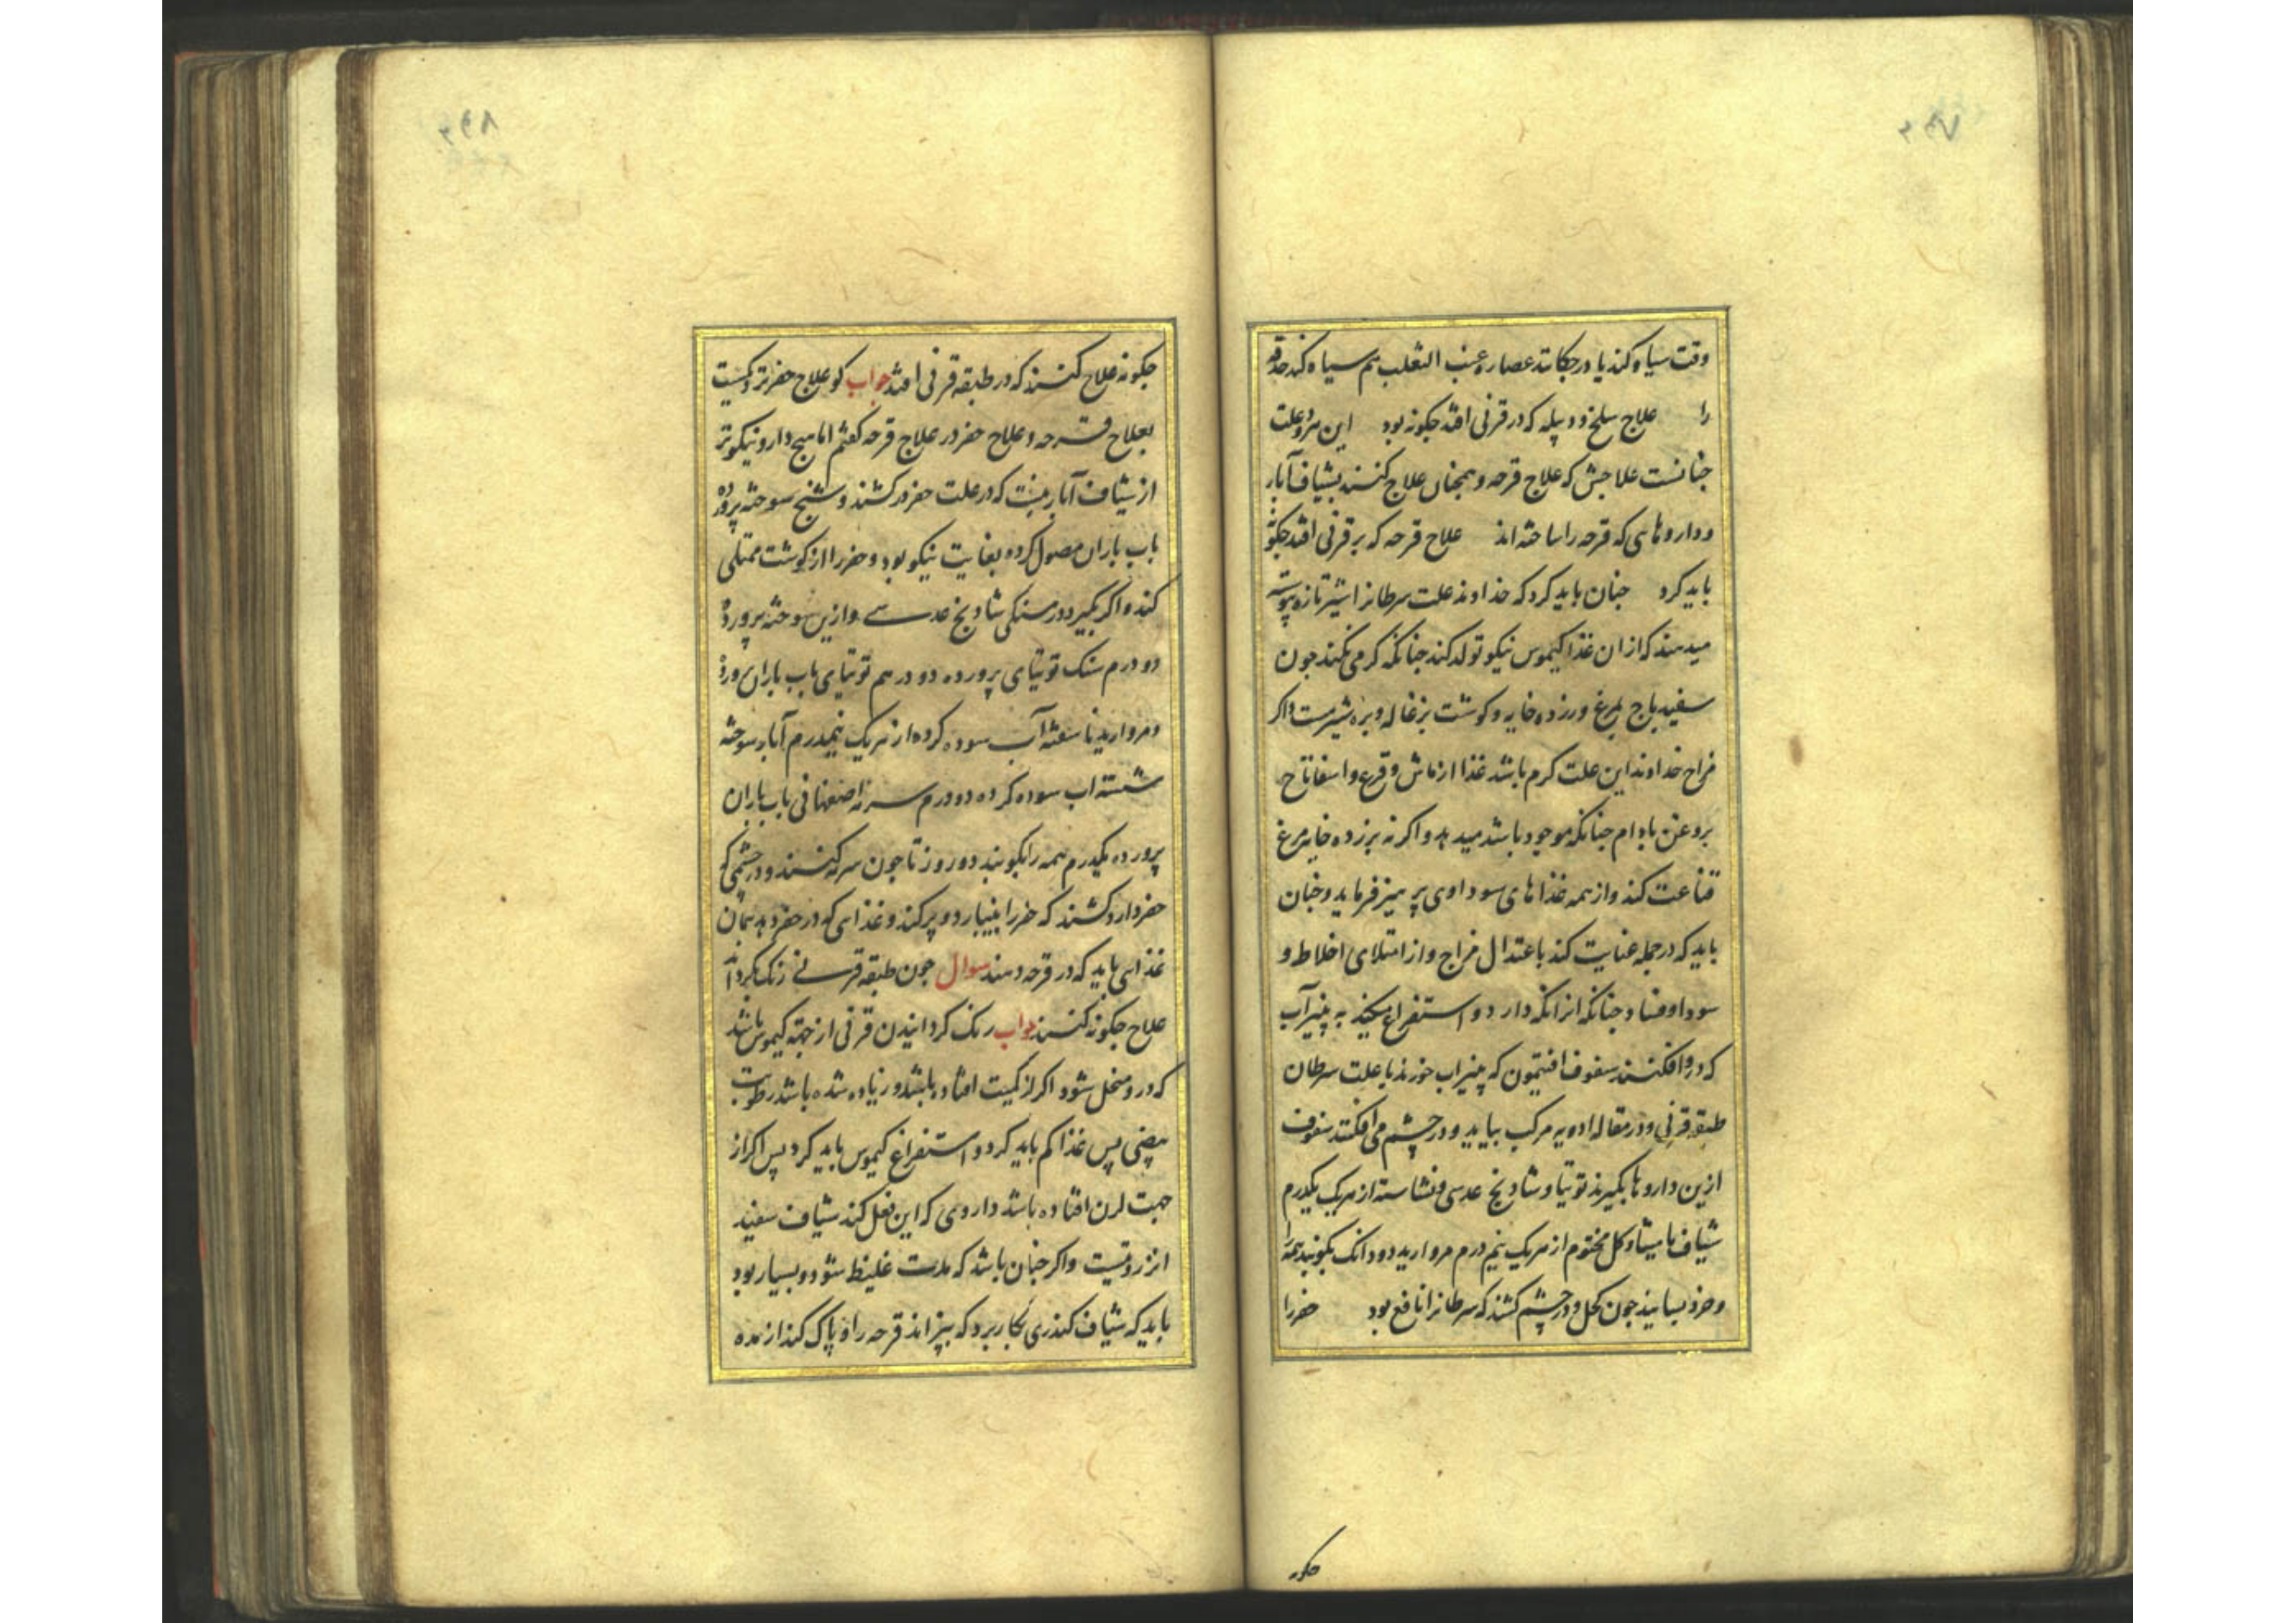 وقت سیاه کند یا در چکاند عصاره عنب الثعلب هم سیاه کند حدقه
را علاج سلخ و دبیله که در قرنی افتد جکونه بود این هر دو علت
جنانست علاجش که علاج قرحه و همجنان علاج کنند بشیاف آبار
و داروهایی که قرحه را ساخته اند علاج قرحه که بر قرنی افتد جکونه
باید کرد جنان باید کرد که خداوند علت سرطانرا شیر تازه پیوسته
میدهند که از ان غذا کیموس نیکو تولد کند جنانکه کرمی نکند جون
سفیدباج بمرغ و زرده خایه و کوشت بزغاله و بره شیرمست و اکر
مزاج خداوند این علت کرم باشد غذا از ماش و قرع و اسفاناخ
بروغن بادام جنانکه موجود باشد میدهد و اکر نه بزرده خایه مرغ
قناعت کند و از همه غذاهای سوداوی پرهیز فرماید و جنان
باید که در جمله عنایت کند باعتدال مزاج و از امتلای اخلاط و
سودا و فساد جنانکه از انکه دارد و استفراغ میکند به پنیرآب
که در و افکنند سفوف افتیمون که پنیراب خورند با علت سرطان
طبقه قرنی و در مقاله ادویه مرکب بیاید و در چشم می افکنند سفوف
ازین داروها بکیرند توتیا و شادنج عدسی و نشاسته از هریک یکدرم
شیاف مامیثا و کل مختوم از هریک نیم درم مروارید دو دانک بکوبند همه را
و خرد بسایند جون کحل و در چشم کشند که سرطانرا نافع بود حفر را
جکونه
جکونه علاج کنند که در طبقه قرنی افتد جواب کو علاج حفر نزدیکست
بعلاج قرحه و علاج حفر در علاج قرحه کفتم اما هیج دارو نیکوتر
از شیاف آبار نیست که در علت حفر در کشند و شنج سوخته پرورده
باب باران مصول کرده بغایت نیکو بود و حفر را از کوشت ممتلی
کند و اکر بکیرد درمسنکی شادنج عدسی و ازین سوخته پرورده
دو درم سنک توتیای پرورده دو درهم توتیای باب باران پرورده
و مروارید ناسفته آب سوده کرده از هریک نیمدرم آبار سوخته
شسته اب سوده کرده دو درم سرمه اصفهانی باب باران
پرورده یکدرم همه را بکوبند دو روز تا جون سرمه کنند و در چشمی که
حفر دارد کشند که حفر را بنیبارد و پر کند و غذایی که در حفر دهد همان
غذایی باید که در قرحه دهند سوال جون طبقه قرنی رنک بکرداند
علاج جکونه کنند جواب رنک کردانیدن قرنی از جهته کیموس باشد
که در و منحل شود اکر از کمیت افتاده باشد و زیاده شده باشد رطوبت
بیضی پس غذا کم باید کرد و استفراغ کیموس باید کرد پس اکر از
جهت لون افتاده باشد داروی که این فعل کند شیاف سفید
انزروتیست و اکر جنان باشد که مدت غلیظ شود و بسیار بود
باید که شیاف کندری بکار برد که بپزاند قرحه را و پاک کند از مده